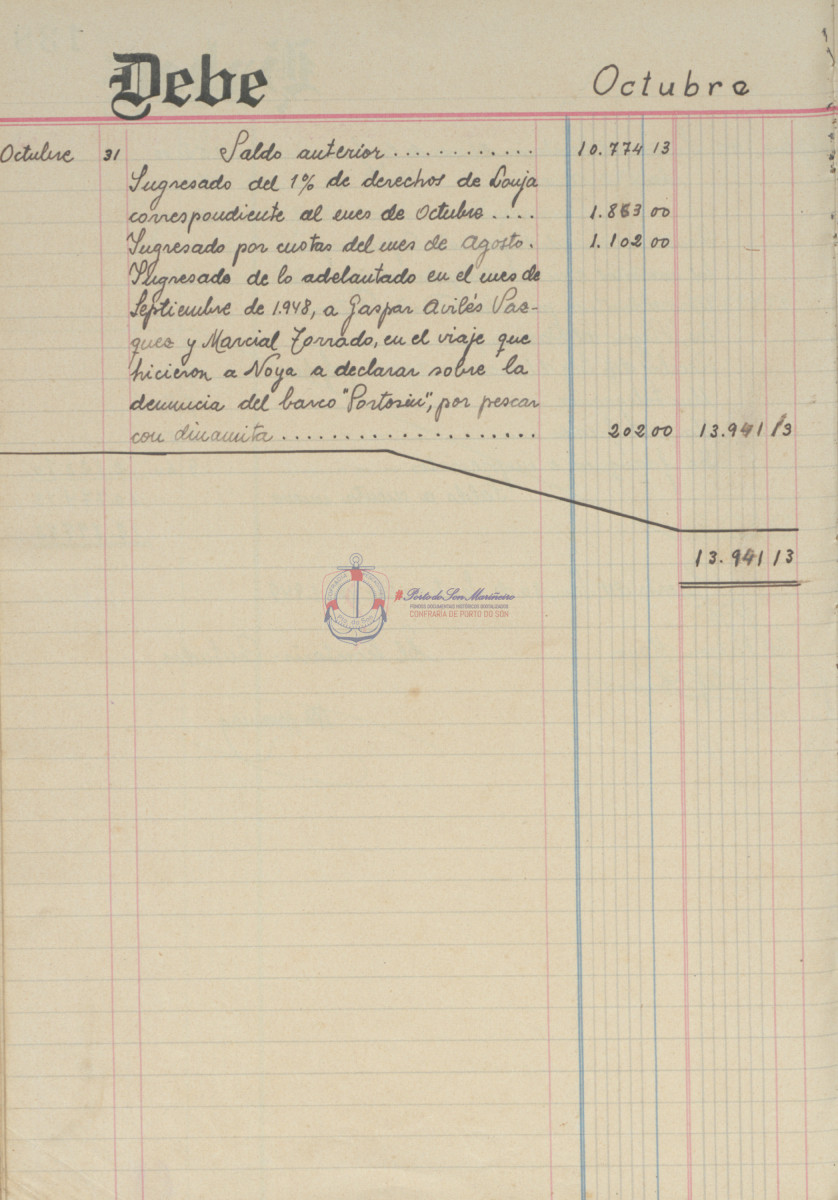 Debe
Octubre
Octubre 31 Saldo anterior ............ 10.774 13
Ingresado del 1% de derechos de Lonja
correspondiente al mes de Octubre .... 1.863 00
Ingresado por cuotas del mes de Agosto. 1.102 00
Ingresado de lo adelantado en el mes de
Septiembre de 1.948, a Gaspar Avilés Vaz-
quez y Marcial Torrado, en el viaje que
hicieron a Noya a declarar sobre la
denuncia del barco "Portosin", por pescar
con dinamita .................... 202 00 13.941 13
13.941 13
Pto. do Son
#Porto do Son Mariñeiro
FONDOS DOCUMENTAIS HISTÓRICOS DIXITALIZADOS
CONFRARÍA DE PORTO DO SON